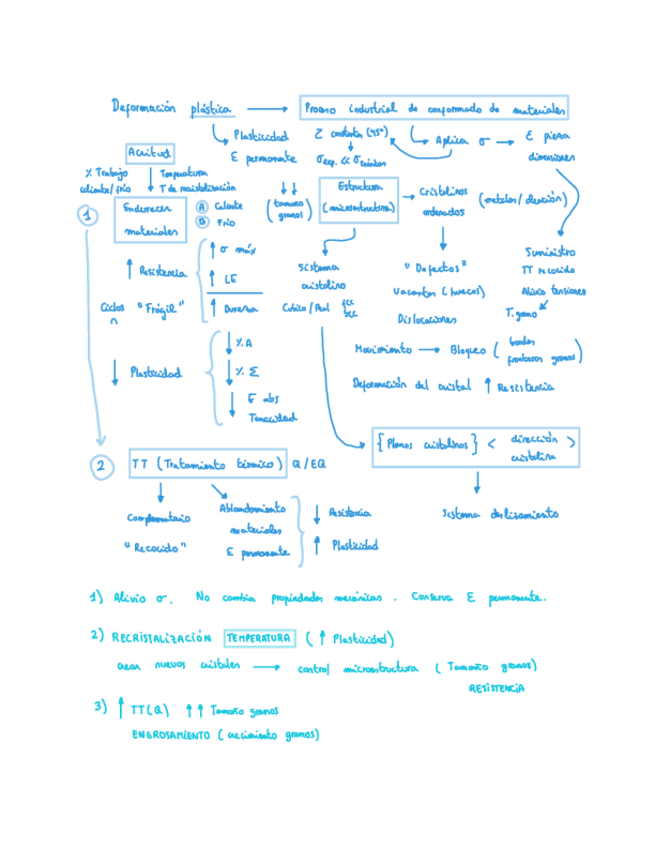 Deformación plástica → Proceso industrial de conformado de materiales
Plasticidad
ε permanente
τ cortante (45°)
σesp. << σteórica
Aplica σ → ε pieza
dimensiones
Acritud
% Trabajo
caliente/frío
Temperatura
T de recristalización
1
Endurecer
materiales
A Caliente
B Frío
(tamaño
granos)
Estructura
(microestructura)
→ Cristalinos
ordenados
(metales/aleación)
↑ Resistencia
↑ σ máx
↑ LE
↑ Dureza
Ciclos "Frágil"
Sistema
cristalino
Cúbico/Red fcc
bcc
"Defectos"
Vacantes (huecos)
Dislocaciones
Suministro
TT recocido
Alivio tensiones
T. grano
↓ Plasticidad
↓ % A
↓ % Σ
↓ E abs
Tenacidad
Movimiento → Bloqueo (bordes
fronteras granos)
Deformación del cristal ↑ Resistencia
{Planos cristalinos} < dirección
cristalina >
Sistema deslizamiento
2
TT (Tratamiento térmico) Q/EQ
Complementario
"Recocido"
Ablandamiento
materiales
ε permanente
↓ Resistencia
↑ Plasticidad
1) Alivio σ. No cambia propiedades mecánicas. Conserva ε permanente.
2) RECRISTALIZACIÓN TEMPERATURA (↑ Plasticidad)
crear nuevos cristales → control microestructura (Tamaño granos)
RESISTENCIA
3) ↑ TT(Q) ↑↑ Tamaño granos
ENGROSAMIENTO (crecimiento granos)